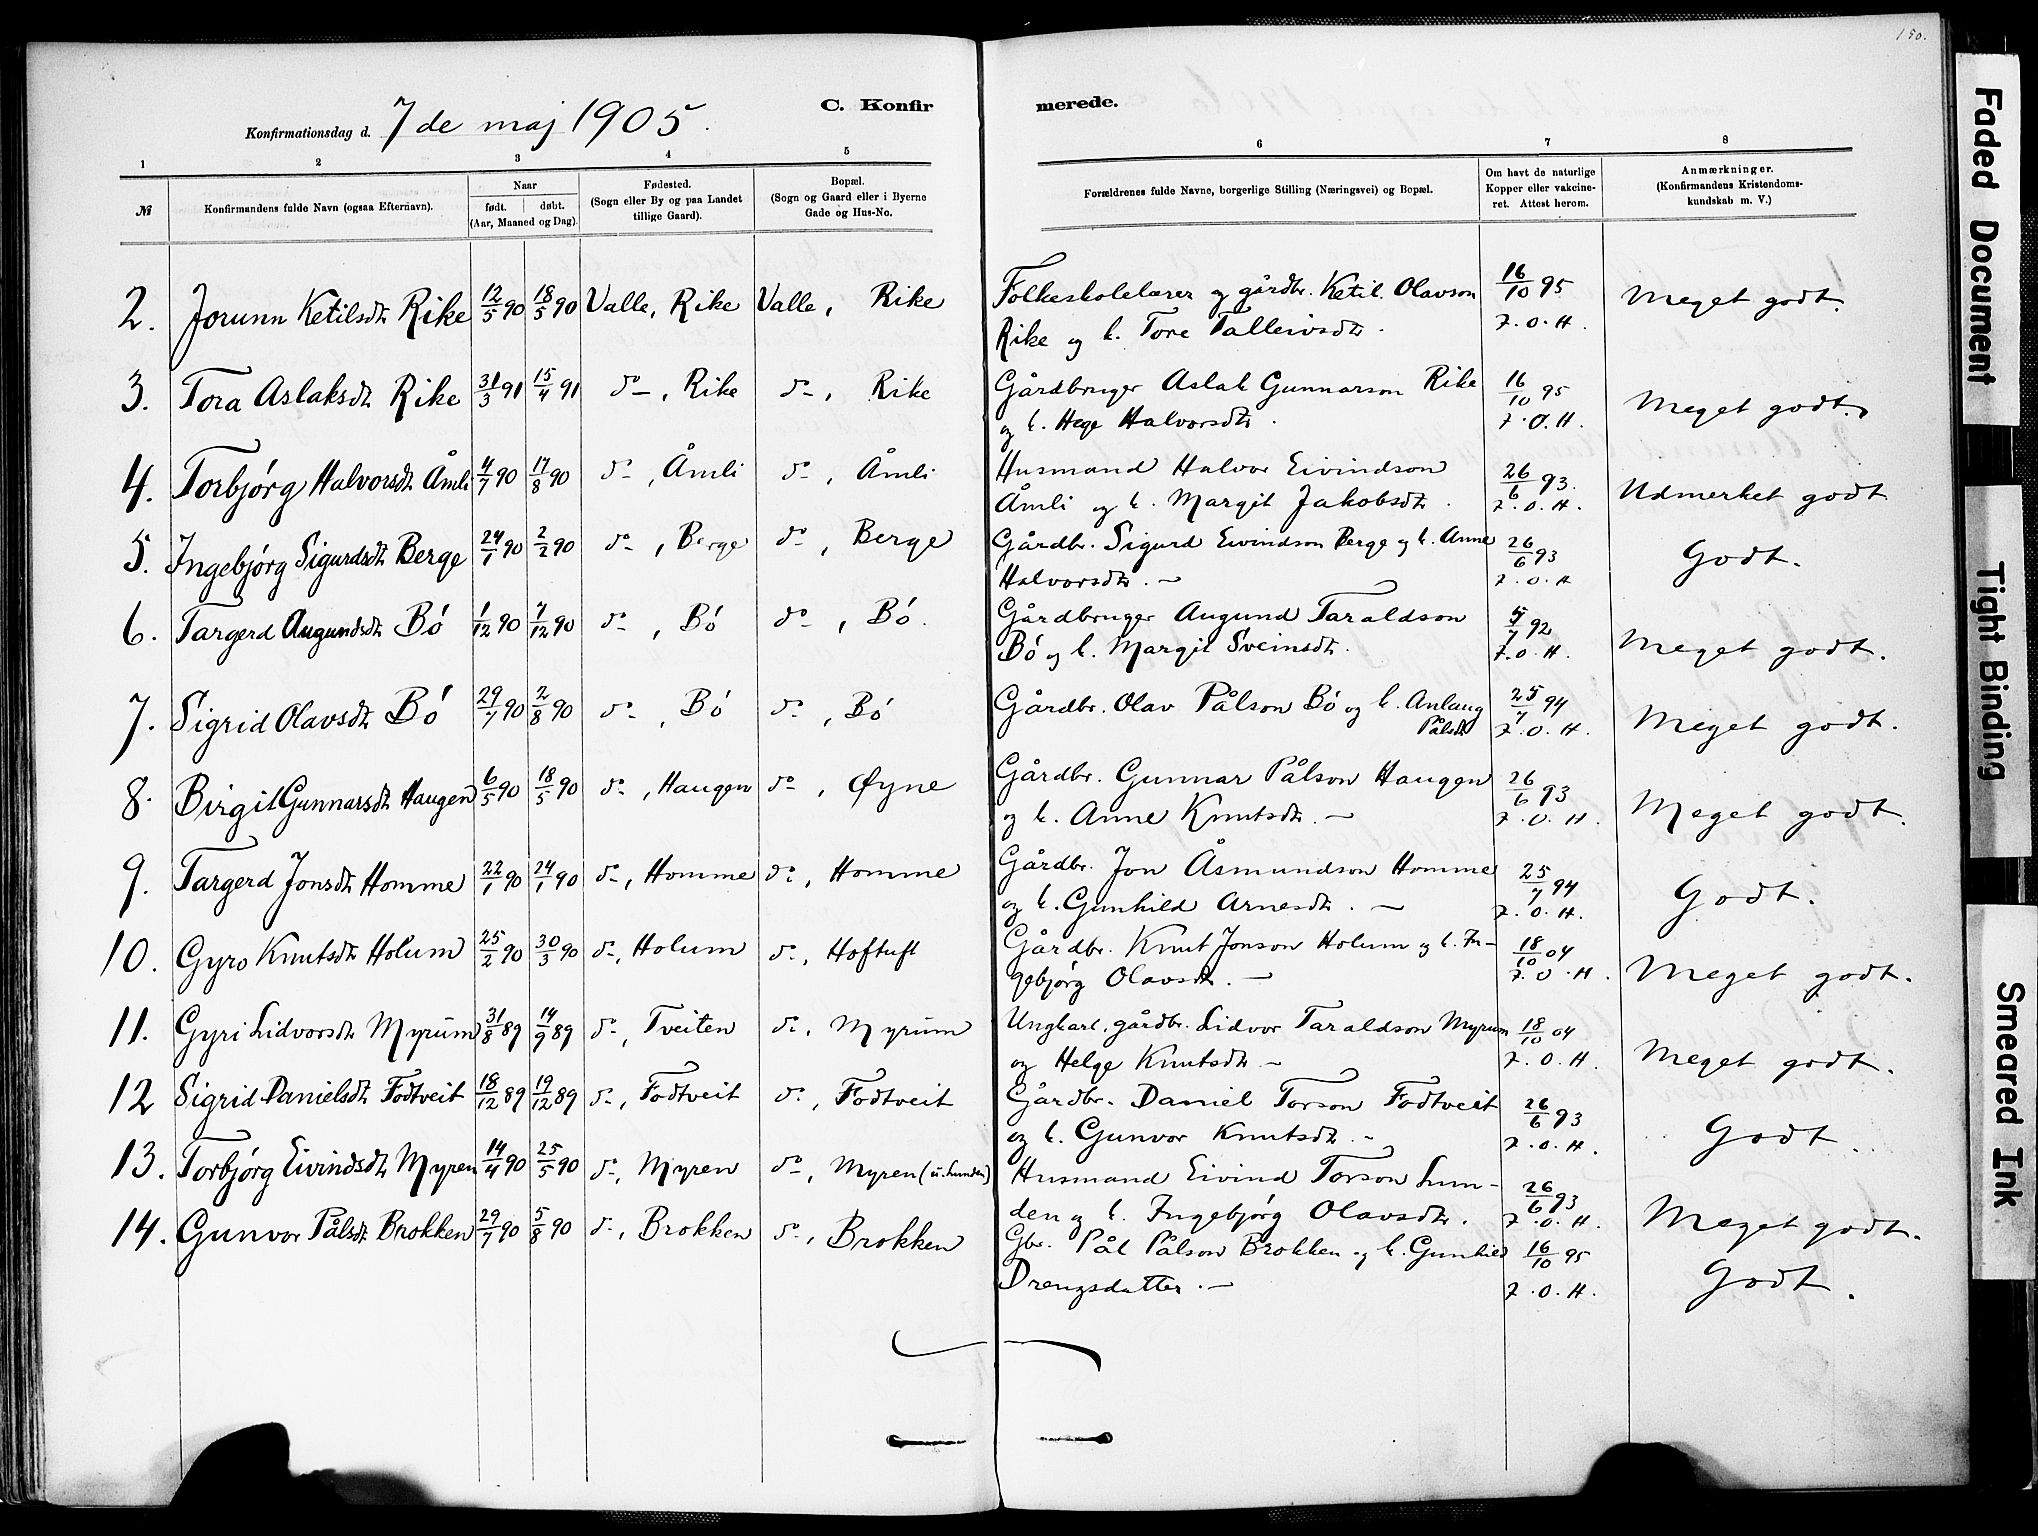 150.
C. Konfirmerede.
Konfirmationsdag d. 7de maj 1905.
1 2 3 4 5 6 7 8
№ Konfirmandens fulde Navn (ogsaa Efternavn). Naar født. døbt. (Aar, Maaned og Dag). Fødested. (Sogn eller By og paa Landet tillige Gaard). Bopæl. (Sogn og Gaard eller i Byerne Gade og Hus-No. Forældrenes fulde Navne, borgerlige Stilling (Næringsvei) og Bopæl. Om havt de naturlige Kopper eller vakcineret. Attest herom. Anmærkninger. (Konfirmandens Kristendomskundskab m. V.)
2. Jorunn Ketilsdtr Rike 12/5 90 18/5 90 Valle, Rike Valle, Rike Folkeskolelærer og gårdbr. Ketil Olavson 16/10 95 Meget godt.
Rike og h. Tore Talleivsdtr. F.O.H.
3. Tora Aslaksdtr Rike 31/3 91 15/4 91 do, Rike do, Rike Gårdbruger Aslak Gunnarson Rike 16/10 95 Meget godt.
og h. Hege Halvorsdtr. F.O.H.
4. Torbjørg Halvorsdtr Åmli 4/7 90 17/8 90 do, Åmli do, Åmli Husmand Halvor Eivindson 26/6 93. Udmerket godt
Åmli og h. Margit Jakobsdtr. F.O.H.
5. Ingebjørg Sigurdsdtr Berge 24/1 90 2/2 90 do, Berge do, Berge Gårdbr. Sigurd Eivindson Berge og h. Anne 26/6 93 Godt.
Halvorsdtr. — F.O.H
6. Targerd Augundsdtr Bó 1/12 90 7/12 90 do, Bó do, Bó. Gårdbruger Augund Taraldson 5/7 92 Meget godt.
Bó og h. Margit Sveinsdtr. F.O.H.
7. Sigrid Olavsdtr Bó 29/7 90 2/8 90 do, Bó do, Bó Gårdbr. Olav Pålson Bó og h. Anlaug 25/7 94 Meget godt.
Pålsdtr F.O.H.
8. Birgit Gunnarsdtr Haugen 6/5 90 18/5 90 do, Haugen do, Øyne Gårdbr. Gunnar Pålson Haugen 26/6 93 Meget godt.
og h. Anne Knutsdtr. — F.O.H.
9. Targerd Jonsdtr Homme 22/1 90 24/1 90 do, Homme do, Homme Gårdbr. Jon Åsmundson Homme 25/7 94 Godt.
og h. Gunhild Arnesdtr. — F.O.H.
10. Gyro Knutsdtr Holum 25/2 90 30/3 90 do, Holum do, Hoftuft Gårdbr. Knut Jonson Holum og h. In- 18/10 04 Meget godt.
gebjørg Olavsdtr. — F.O.H.
11. Gyri Lidvorsdtr Myrum 31/8 89 14/9 89 do, Tveiten do, Myrum Ungkarl, gårdbr. Lidvor Taraldson Myrum 18/10 04 Meget godt.
og Helge Knutsdtr — F.O.H.
12 Sigrid Danielsdtr Fodtveit 18/12 89 19/12 89 do, Fodtveit do, Fodtveit Gårdbr. Daniel Torson Fodtveit 26/6 93 Godt.
og h. Gunvor Knutsdtr. — F.O.H.
13. Torbjørg Eivindsdtr Myren 14/4 90 25/5 90 do, Myren do, Myren (u. Lunden) Husmand Eivind Torson Lun- 26/6 93 Meget godt.
den og h. Ingebjørg Olavsdtr. F.O.H.
14. Gunvor Pålsdtr Brokken 29/7 90 5/8 90 do, Brokken do, Brokken Gbr. Pål Pålson Brokken og h. Gunhild 16/10 95 Godt.
Drengsdatter. — F.O.H.
Faded Document
Tight Binding
Smeared Ink